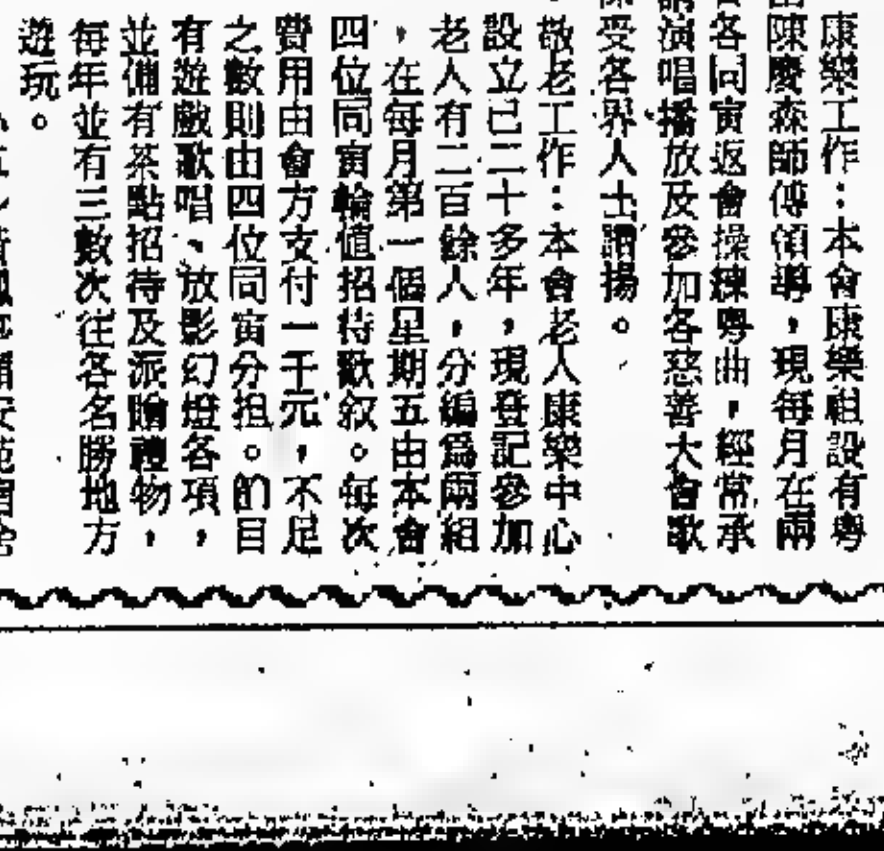 康樂工作：本會康樂組設有粵
陳慶森師傅領導，現每月在兩
各同寅返會操練粵曲，經常承
演唱播放及參加各慈善大會歌
受各界人士讚揚。
敬老工作：本會老人康樂中心
設立已二十多年，現登記參加
老人有二百餘人，分編爲兩組
，在每月第一個星期五由本會
四位同寅輪值招待歡叙。每次
費用由會方支付一千元，不足
之數則由四位同寅分担。的目
有遊戲歌唱、放影幻燈各項，
並備有茶點招待及派贈禮物，
每年並有三數次往各名勝地方
遊玩。